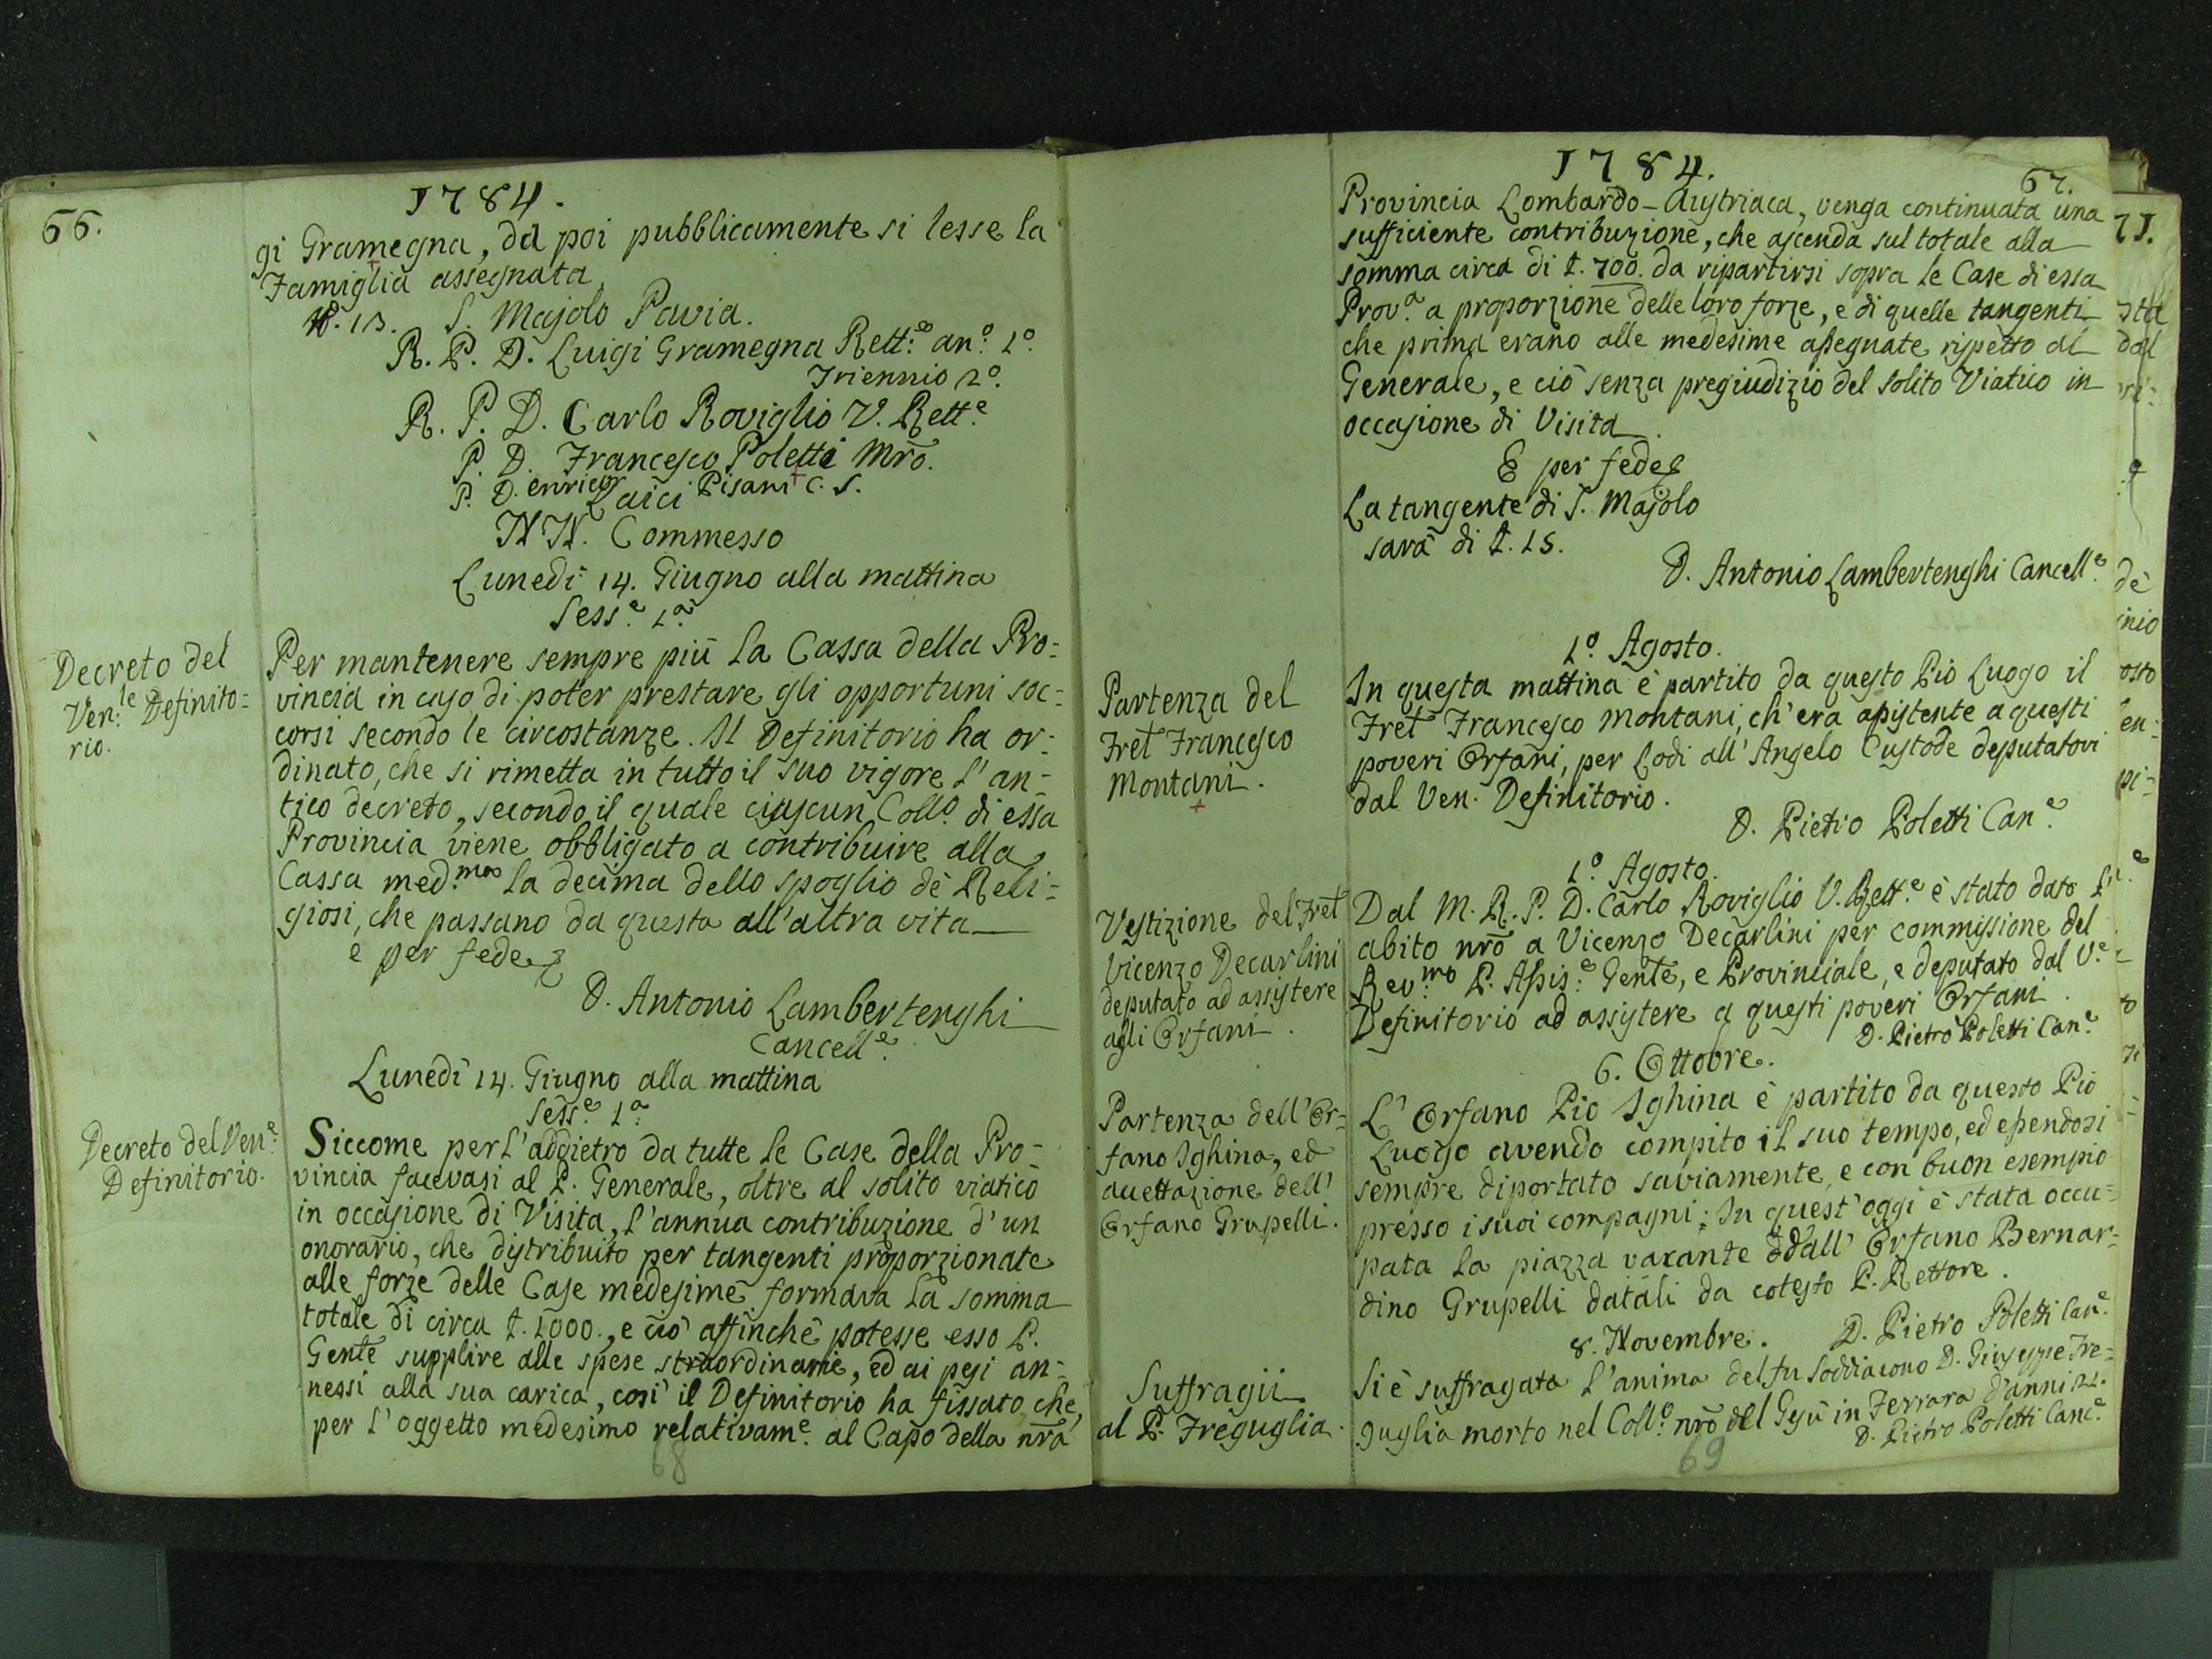 66.
1784.
gi Gramegna, da poi pubblicamente si lesse la
Famiglia assegnata
N. 13. S. Majolo Pavia.
R. P. D. Luigi Gramegna Rett.e an.o 1.o
Triennio 2.o
R. P. D. Carlo Roviglio V. Rett.e
P. D. Francesco Poletti Mr̃o.
P. D. Enrico Pisani C. S.
Laici
N N. Commesso
Lunedì 14. Giugno alla mattina
Sess.e 1.a
Decreto del
Ven:le Definito=
rio.
Per mantenere sempre più la Cassa della Pro=
vincia in caso di poter prestare gli opportuni soc=
corsi secondo le circostanze. Il Definitorio ha or=
dinato, che si rimetta in tutto il suo vigore l'an=
tico decreto, secondo il quale ciascun Coll.o di essa
Provincia viene obbligato a contribuire alla
Cassa med.ma la decima dello spoglio dè Reli=
giosi, che passano da questa all'altra vita
e per fede
D. Antonio Lambertenghi
Cancell.e
Lunedì 14. Giugno alla mattina
Sess.e 1.a
Decreto del Ven.e
Definitorio.
Siccome per l'addietro da tutte le Case della Pro=
vincia facevasi al P. Generale, oltre al solito viatico
in occasione di Visita, l'annua contribuzione d'un
onorario, che distribuito per tangenti proporzionate
alle forze delle Case medesime formava la somma
totale di circa £. 1000., e ciò affinchè potesse esso P.
Gen̄te supplire alle spese straordinarie, ed ai pesi an=
nessi alla sua carica, così il Definitorio ha fissato, che
per l'oggetto medesimo relativam.e al Capo della nr̃a
68
1784.
67.
Provincia Lombardo-Austriaca, venga continuata una
sufficiente contribuzione, che ascenda sul totale alla
somma circa di £. 700. da ripartirsi sopra le Case di essa
Prov.a a proporzione delle loro forze, e di quelle tangenti
che prima erano alle medesime assegnate rispetto al
Generale, e ciò senza pregiudizio del solito Viatico in
occasione di Visita.
E per fede
La tangente di S. Majolo
sarà di £. 15.
D. Antonio Lambertenghi Cancell.e
1.o Agosto.
Partenza del
Fret̃ Francesco
Montani.
In questa mattina è partito da questo Pio Luogo il
Fret̃ Francesco Montani, ch'era assistente a questi
poveri Orfani, per Lodi all'Angelo Custode deputatovi
dal Ven. Definitorio.
D. Pietro Poletti Can.e
1.o Agosto.
Vestizione del Fret̃
Vicenzo Decarlini
deputato ad assistere
agli Orfani.
Dal M. R. P. D. Carlo Roviglio V. Rett.e è stato dato l'
abito nr̃o a Vicenzo Decarlini per commissione del
Rev.mo P. Assis.e Gente, e Provinciale, e deputato dal V.e
Definitorio ad assistere a questi poveri Orfani.
D. Pietro Poletti Can.e
6. Ottobre.
Partenza dell'Or=
fano Sghina, ed
accettazione dell'
Orfano Grupelli.
L'Orfano Pio Sghina è partito da questo Pio
Luogo avendo compito il suo tempo, ed essendosi
sempre diportato saviamente, e con buon esempio
presso i suoi compagni: In quest'oggi è stata occu=
pata la piazza vacante dall'Orfano Bernar=
dino Grupelli datali da cotesto P. Rettore.
D. Pietro Poletti Can.e
8. Novembre.
Suffragii
al P. Freguglia.
Si è suffragata l'anima del fu Soddiacono D. Giuseppe Fre=
guglia morto nel Coll.o nr̃o del Gesù in Ferrara d'anni 22.
D. Pietro Poletti Canc.e
69
71.